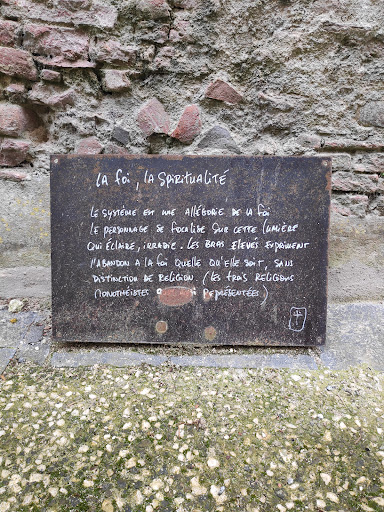 La foi, la spiritualité
Le système est une allégorie de la foi
Le personnage se focalise sur cette lumière
qui éclaire, irradie. Les bras élevés expriment
l'abandon à la foi quelle qu'elle soit, sans
distinction de religion (les trois religions
monothéistes représentées)